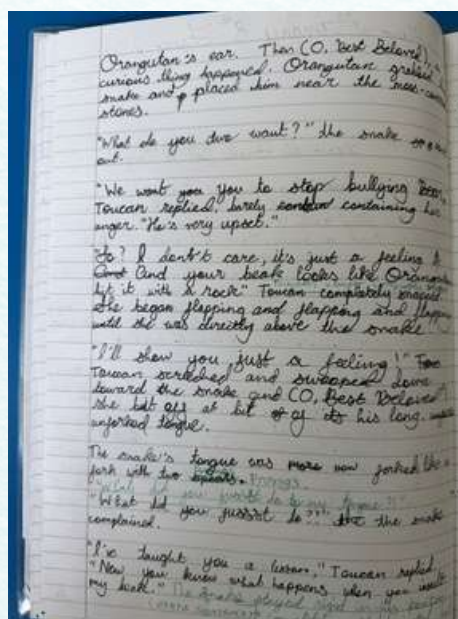 Orangutan's ear. Then (O, Best Beloved), a
curious thing happened. Orangutan grabbed
snake and placed him near the moss-
stones.
"What do you two want?" the snake
out.
"We want you to stop bullying
Toucan replied, barely containing her
anger. "He's very upset."
"So? I don't care, it's just a feeling
And your beak looks like Orangutan
hit it with a rock" Toucan completely snapped
She began flapping and flapping and flapping
until she was directly above the snake
"I'll show you just a feeling!"
Toucan screched and swooped down
toward the snake and (O, Best Beloved)
she bit off at bit of his long,
unforked tongue.
The snake's tongue was now forked like a
fork with two prongs.
"What did you jussst do
"What did you jussst do??" the snake
complained.
"I've taught you a lesson," Toucan replied
"Now you know what happens when you insult
my beak." The snake